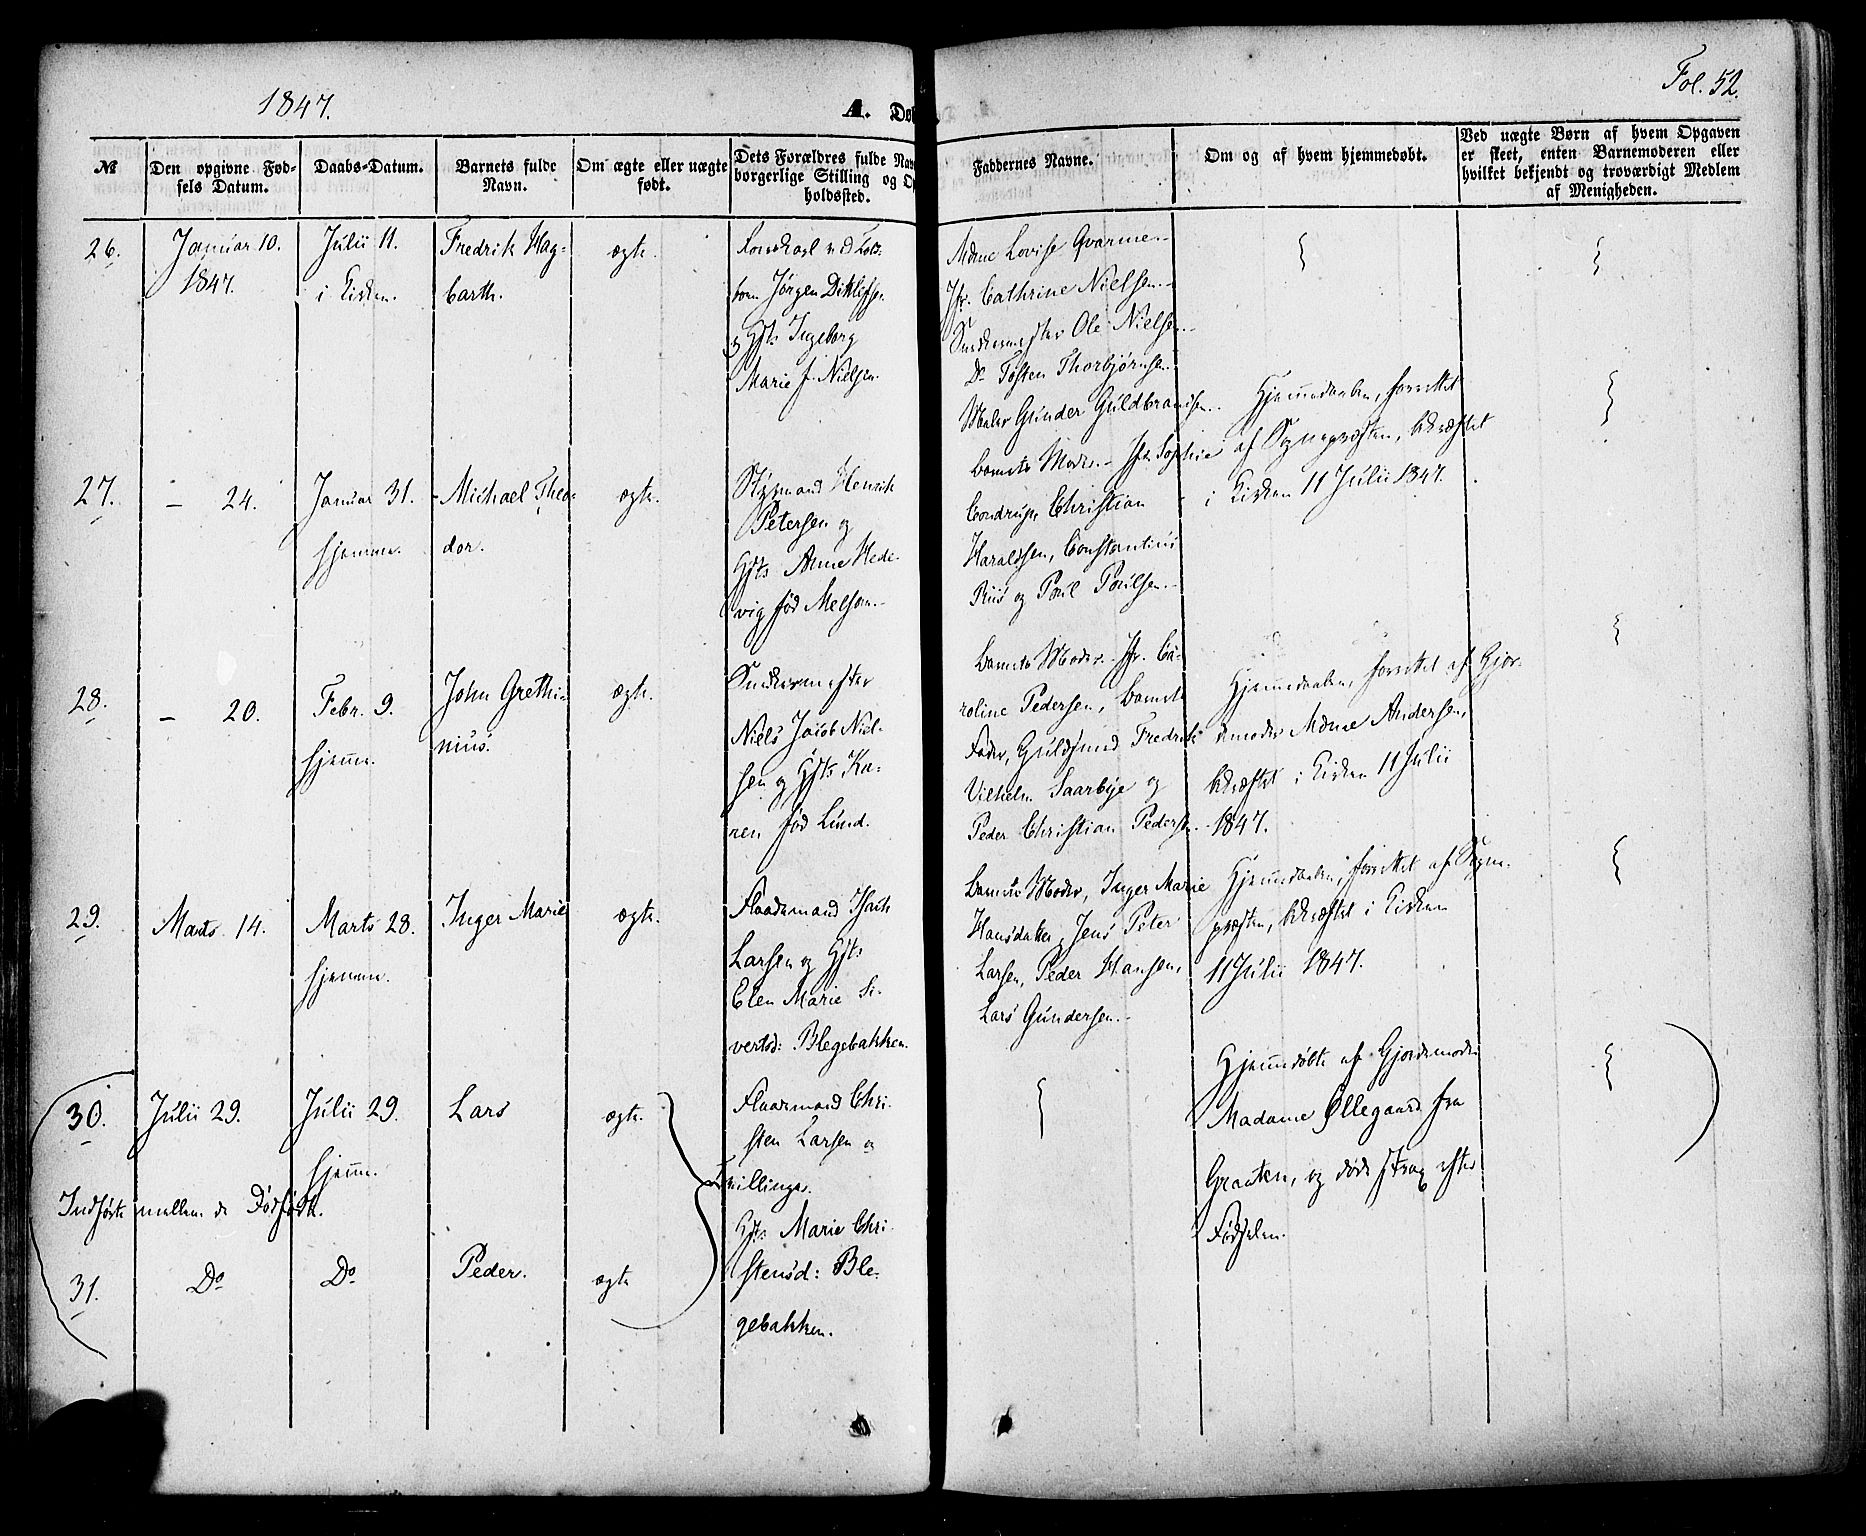 1847.
A. Døb
Fol. 52.
№
Den opgivne Fød-
sels Datum.
Daabs-Datum.
Barnets fulde
Navn.
Om ægte eller uægte
født.
Dets Forældres fulde Nav
borgerlige Stilling og Op
holdssted.
Faddernes Navne.
Om og af hvem hjemmedøbt.
Ved uægte Børn af hvem Opgaven
er skeet, enten Barnemoderen eller
hvilket bekjendt og troværdigt Medlem
af Menigheden.
26.
Januar 10.
1847.
Julii 11.
i Kirken.
Fredrik Hag-
barth.
ægte.
Jørgen Ditlefsen
og Hstr Ingeborg
Marie f. Nielsen.
Mdme Lovise Qvarme.-
Jfr. Cathrine Nielsen.-
Snedkermester Ole Nielsen.-
Do Tosten Thorbjørnsen.
Maler Gunder Guldbrandsen.
27.
— 24.
Januar 31.
hjemme.
Michael Theo-
dor.
ægte.
Styrmand Henrik
Petersen og
Hstr Anne Hede-
vig fød Melsom.-
Barnets Moder.- Jfr. Sophie
Condrup, Christian
Haraldsen, Constantius
Riis og Poul Poulsen.-
Hjemmedaaben, forrettet
af Sognepræsten, bekræftet
i Kirken 11 Julii 1847.
28.
— 20.
Febr. 9.
hjemme.
John Grethi-
nius.
ægte.
Snedkermester
Niels Jacob Niel-
sen og Hstr Ka-
ren fød Lund.
Barnets Moder.- Jfr. Ca-
roline Pedersen, Barnets
Fader, Guldsmed Fredrik
Vilhelm Saarbye og
Peder Christian Pedersen.
Hjemmedaaben, forrettet af Gjor-
demoder Mdme Andersen,
bekræftet i Kirken 11 Julii
1847.
29.
Marts 14.
Marts 28.
hjemme.
Inger Marie
ægte.
Flaadermand Isach
Larsen og Hstr
Elen Marie Si-
vertsd: Blegebakken.
Barnets Moder, Inger Marie
Hansdatter, Jens Peter
Larsen, Peder Hansen,
Lars Gundersen.-
Hjemmedaaben, forrettet af Sogne-
præsten, bekræftet i Kirken
11 Julii 1847.
30.
Julii 29.
Julii 29.
hjemme.
Lars
ægte.
Flaadermand Chri-
sten Larsen og
Tvillinger.
Hstr Marie Chri-
stensd: Ble-
gebakken.
Hjemmedøbte af Gjordemoder
Madame Øllegaard fra
Graaten, og døde strax efter
Fødselen.
Indførte mellem de Dødfødte.
31.
Do
Do
Peder.
ægte